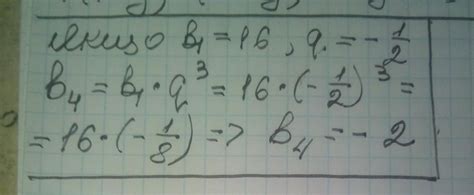 якщо b₁ = 16, q = -1/2
b₄ = b₁ · q³ = 16 · (-1/2)³ =
= 16 · (-1/8) => b₄ = - 2